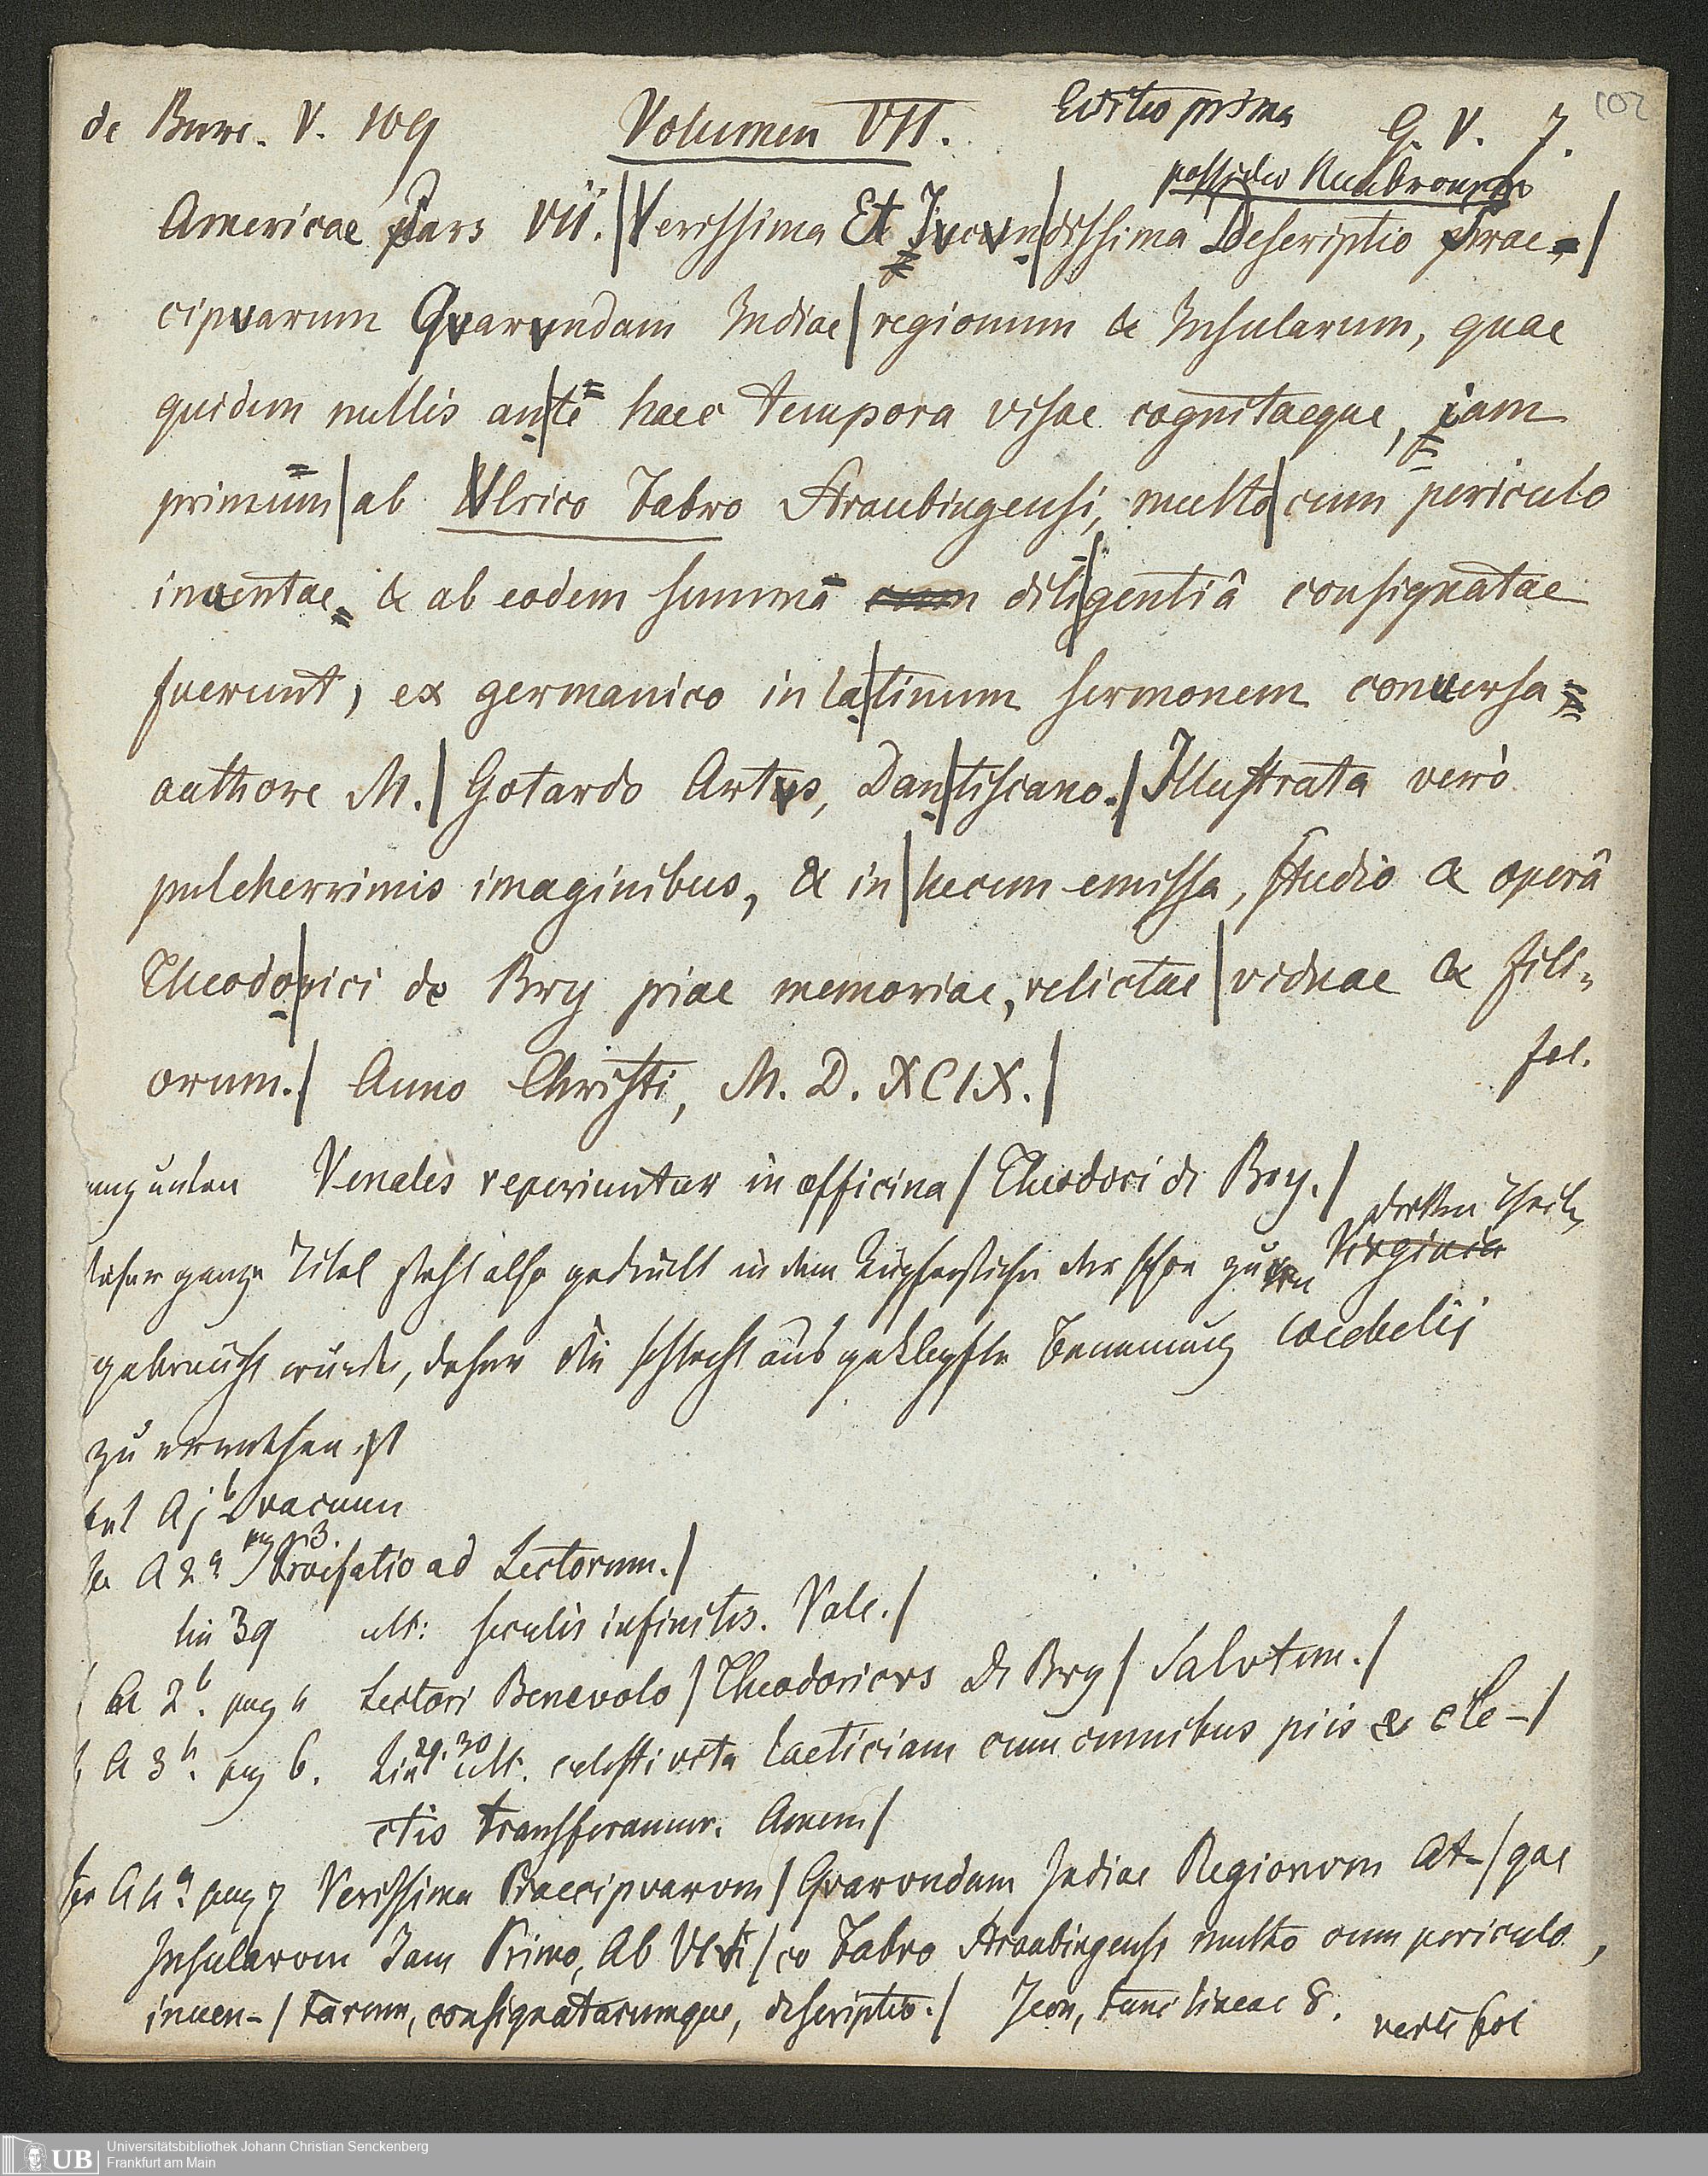 de Bure. V. 109 Volumen VII. Editio prima G. V. 7. 102
possideo
Americae Pars VII. | Verissima Et Jvcvn|dissima Descriptio Prae=|
cipvarum Qvarvndam Indiae | regionum & Insularum, quae
quidem nullis an|te haec tempora visae cognitaeque, iam
primum | ab Vlrico Fabro Straubingensi, multo | cum periculo
inuentae & ab eodem summa cum dili|gentiâ consignatae
fuerunt, ex germanico in la|tinum sermonem conuersa
authore M. | Gotardo Artvs, Dan|tiscano. | Illustrata verò
pulcherrimis imaginibus, & in | lucem emissa, studio & operâ
Theodo|rici de Bry piae memoriae, relictae | viduae & fili=
orum. | Anno Christi, M. D. XCIX. |
fel.
unten Venales reperiuntur in officina / Theodori de Bry. /
dritten Theil
ganze Titel steht also gedruckt in dem Kupferstiche der schon zum Virginia
gebraucht wurde, daher die schlecht ausgeklopfte Benennung
zu ersehen ist
A j b vacuum
pag 3.
A 2 a Praefatio ad Lectorem. /
lin 39 ult: seculis infinitis. Vale. /
A 2 b. pag 4 Lectori Benevolo / Theodoricvs De Bry / Salvtem. /
29. 30
A 3 b. pag 6. Lin ult. celesti vita laeticiam cum omnibus piis & ele- /
ctis transferamur. Amen /
A 4 a. pag 7 Verissima Praecipvarvm / Qvarvndam Indiae Regionvm At- / qae
Insularvm Iam Primo, Ab Vlri / co Fabro Straubingensi multo cum periculo,
inuen- / tarum, consignatarumque, descriptio. / Icon, tunc lineae 8. verte fol
UB Universitätsbibliothek Johann Christian Senckenberg
Frankfurt am Main